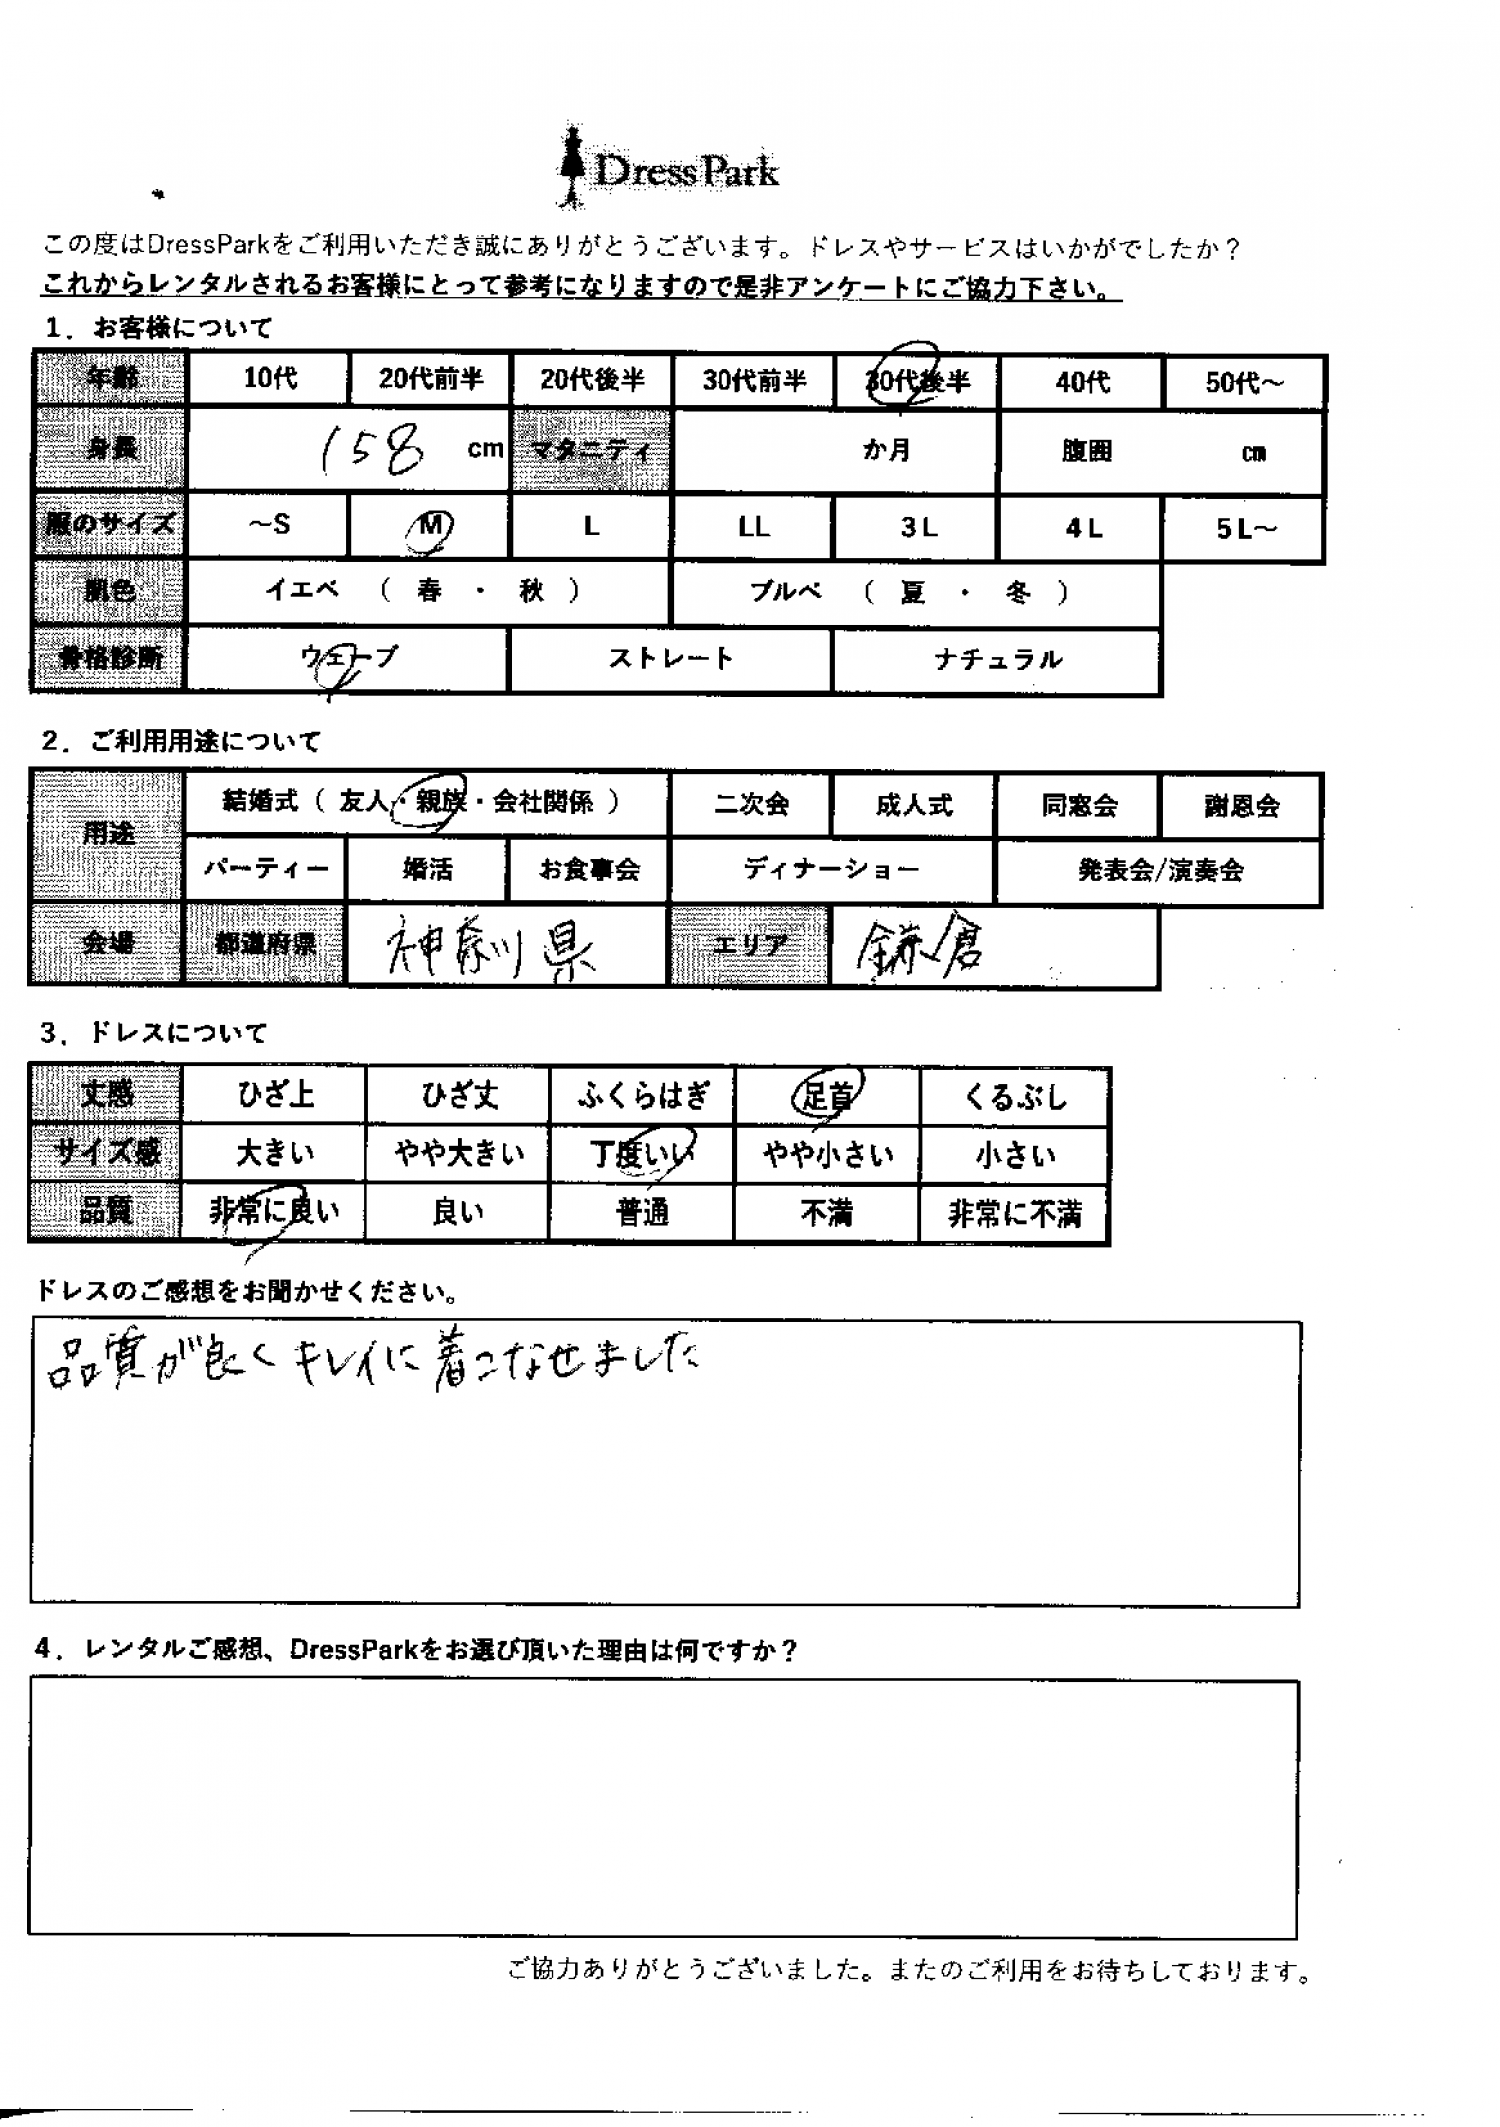 DressPark
この度はDressParkをご利用いただき誠にありがとうございます。ドレスやサービスはいかがでしたか？
これからレンタルされるお客様にとって参考になりますので是非アンケートにご協力下さい。
1．お客様について
年齢 10代 20代前半 20代後半 30代前半 30代後半 40代 50代～
身長 158 cm マタニティ か月 腹囲 cm
服のサイズ ～S M L LL 3L 4L 5L～
肌色 イエベ （ 春 ・ 秋 ） ブルベ （ 夏 ・ 冬 ）
骨格診断 ウェーブ ストレート ナチュラル
2．ご利用用途について
用途 結婚式（ 友人・親族・会社関係 ） 二次会 成人式 同窓会 謝恩会
パーティー 婚活 お食事会 ディナーショー 発表会/演奏会
会場 都道府県 神奈川県 エリア 鎌倉
3．ドレスについて
丈感 ひざ上 ひざ丈 ふくらはぎ 足首 くるぶし
サイズ感 大きい やや大きい 丁度いい やや小さい 小さい
品質 非常に良い 良い 普通 不満 非常に不満
ドレスのご感想をお聞かせください。
品質が良くキレイに着こなせました
4．レンタルご感想、DressParkをお選び頂いた理由は何ですか？
ご協力ありがとうございました。またのご利用をお待ちしております。